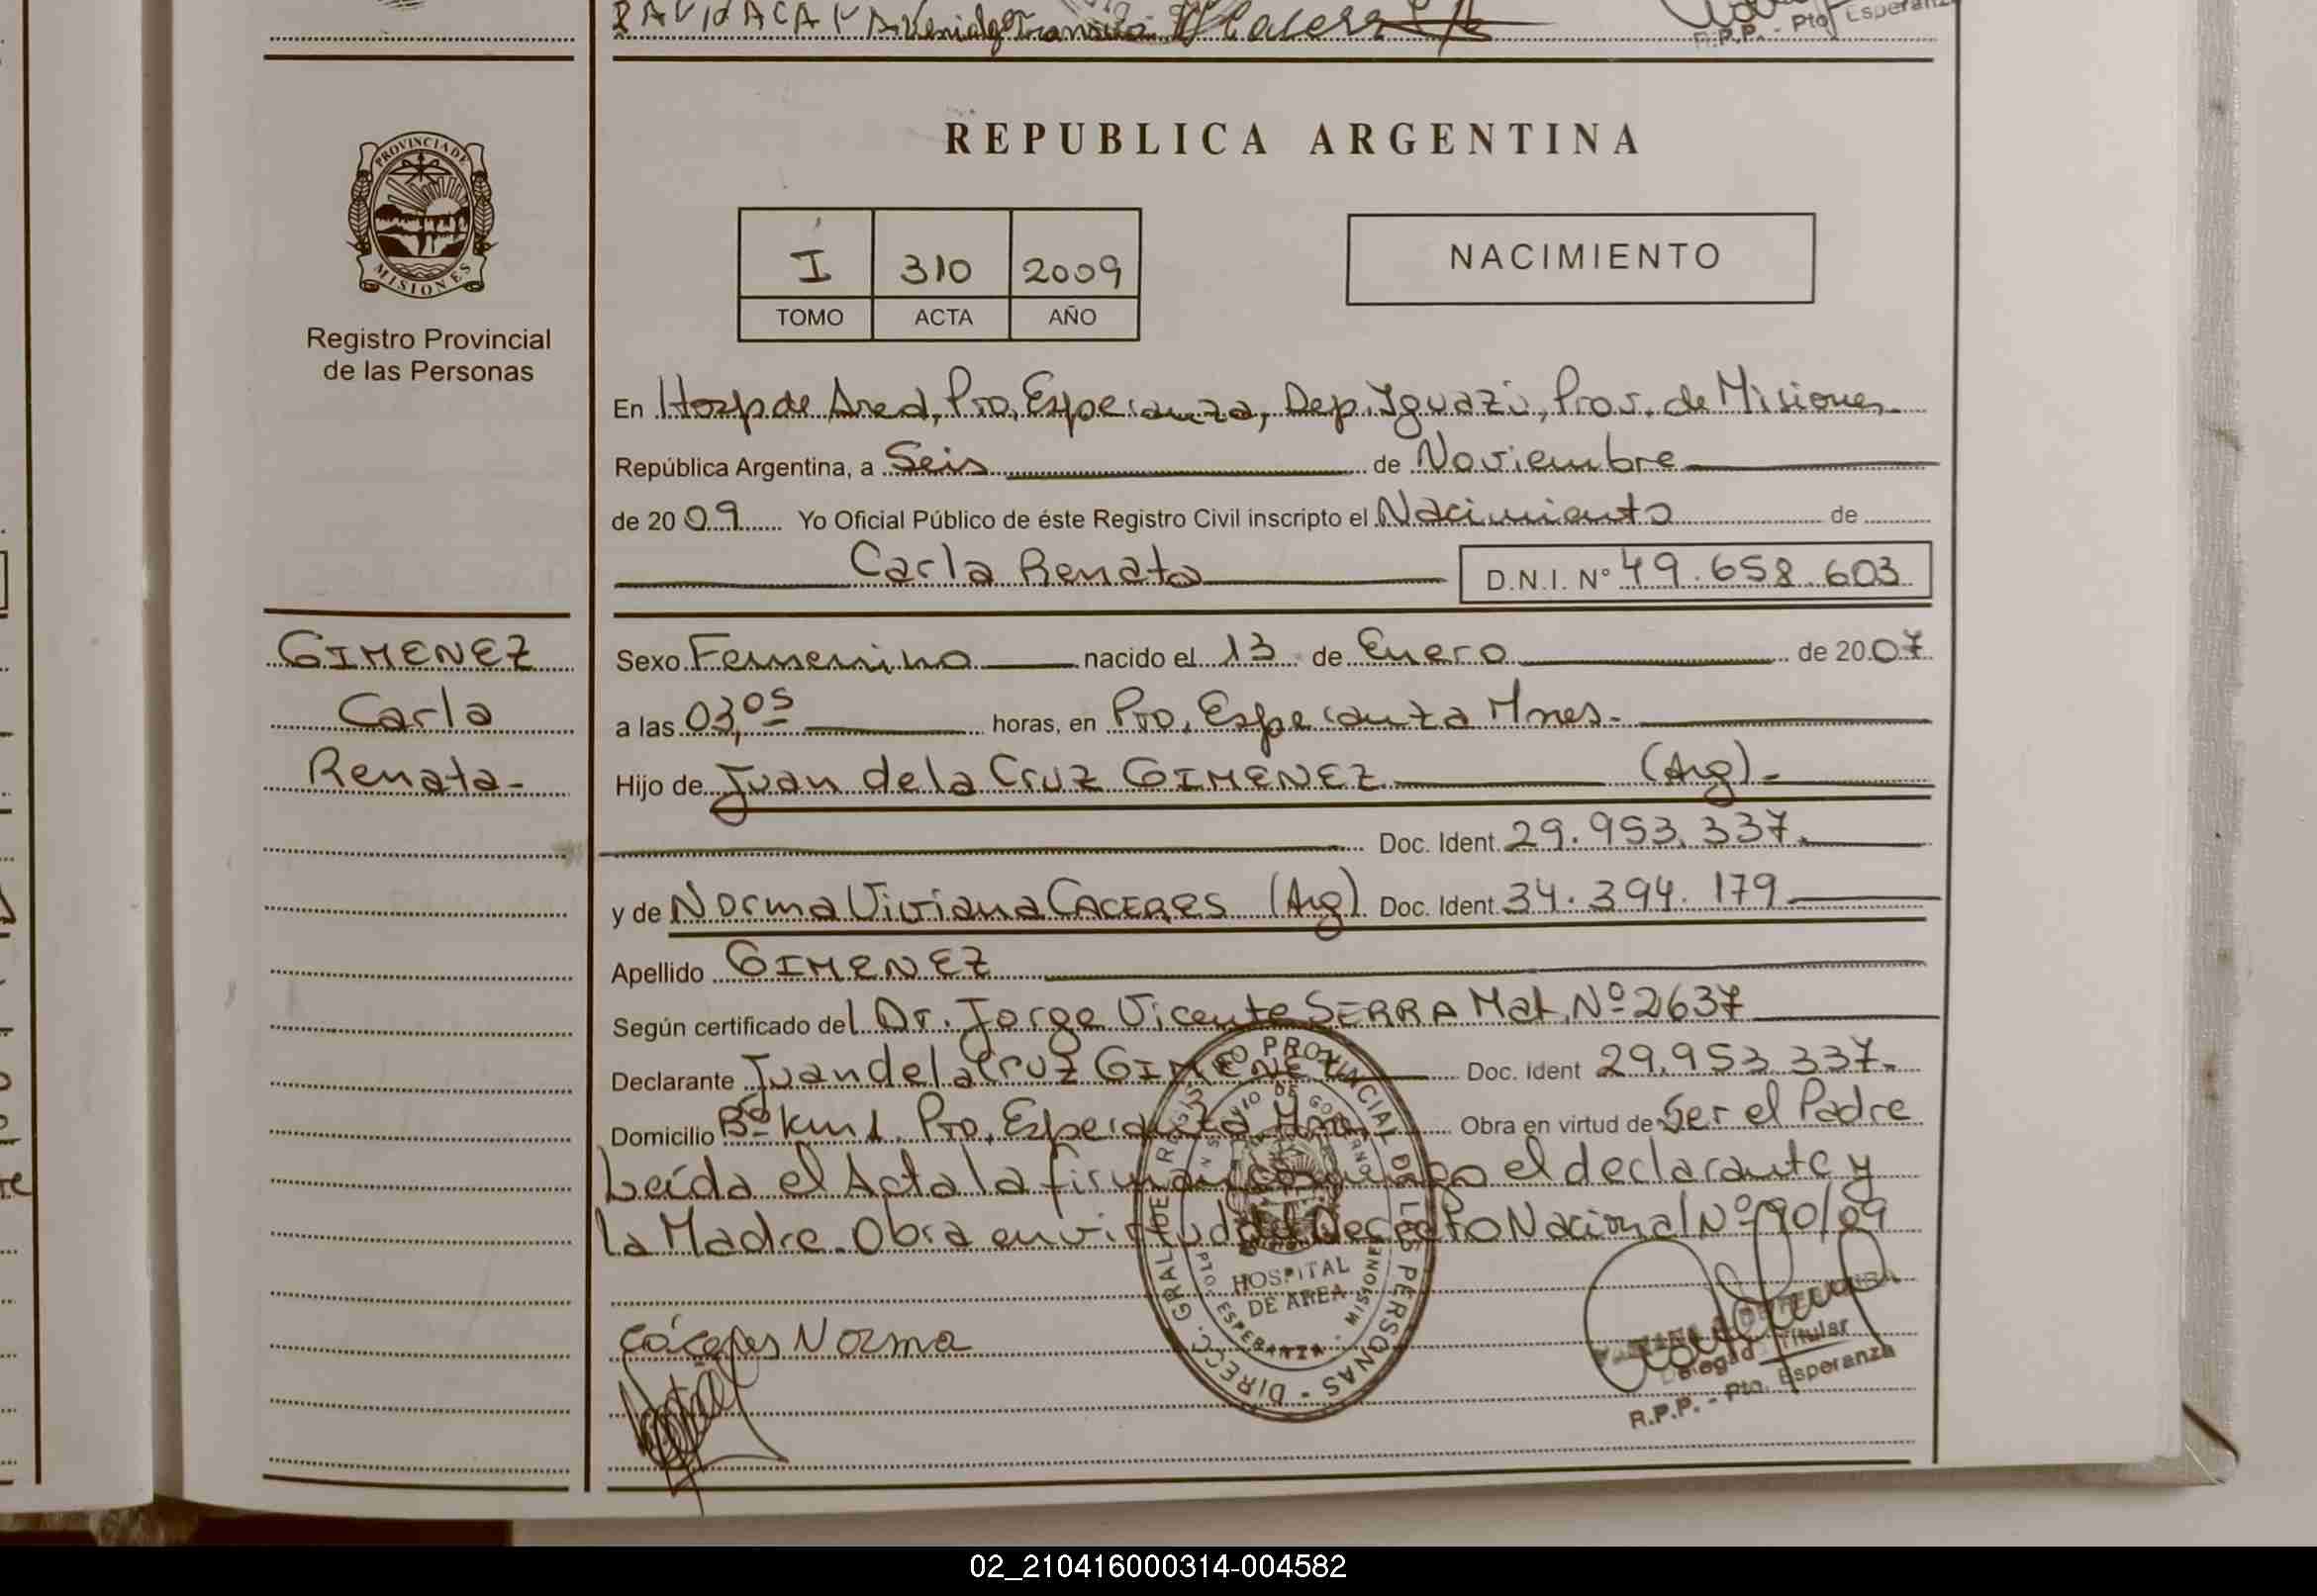 Pto. Esperanza
R.P.P. - Pto. Esperanza
PROVINCIA DE
MISIONES
Registro Provincial
de las Personas
REPUBLICA ARGENTINA
I 310 2009
TOMO ACTA AÑO
NACIMIENTO
En Hosp de Area, Pto. Esperanza, Dep. Iguazú, Prov. de Misiones
República Argentina, a Seis de Noviembre
de 2009 Yo Oficial Público de éste Registro Civil inscripto el Nacimiento de
Carla Renata D.N.I. Nº 49.658.603
GIMENEZ
Carla
Renata-
Sexo Femenino nacido el 13 de Enero de 2007
a las 03,05 horas, en Pto. Esperanza Mnes.
Hijo de Juan de la Cruz GIMENEZ (Arg)-
Doc. Ident. 29.953.337.
y de Norma Viviana CACERES (Arg) Doc. Ident. 34.394.179
Apellido GIMENEZ
Según certificado del Dr. Jorge Vicente SERRA Mat. Nº 2637
Declarante Juan de la Cruz GIMENEZ Doc. Ident 29.953.337-
Domicilio Bº km 1. Pto. Esperanza Mnes Obra en virtud de Ser el Padre
Leída el Acta la firman conmigo el declarante y
la Madre. Obra en virtud del Decreto Nacional Nº 90/09
DIRECC. GRAL DE REGISTRO PROVINCIAL DE LAS PERSONAS
HOSPITAL
DE AREA
ESPERANZA - MISIONES
Cáceres Norma
Titular
R.P.P. - Pto. Esperanza
02_210416000314-004582